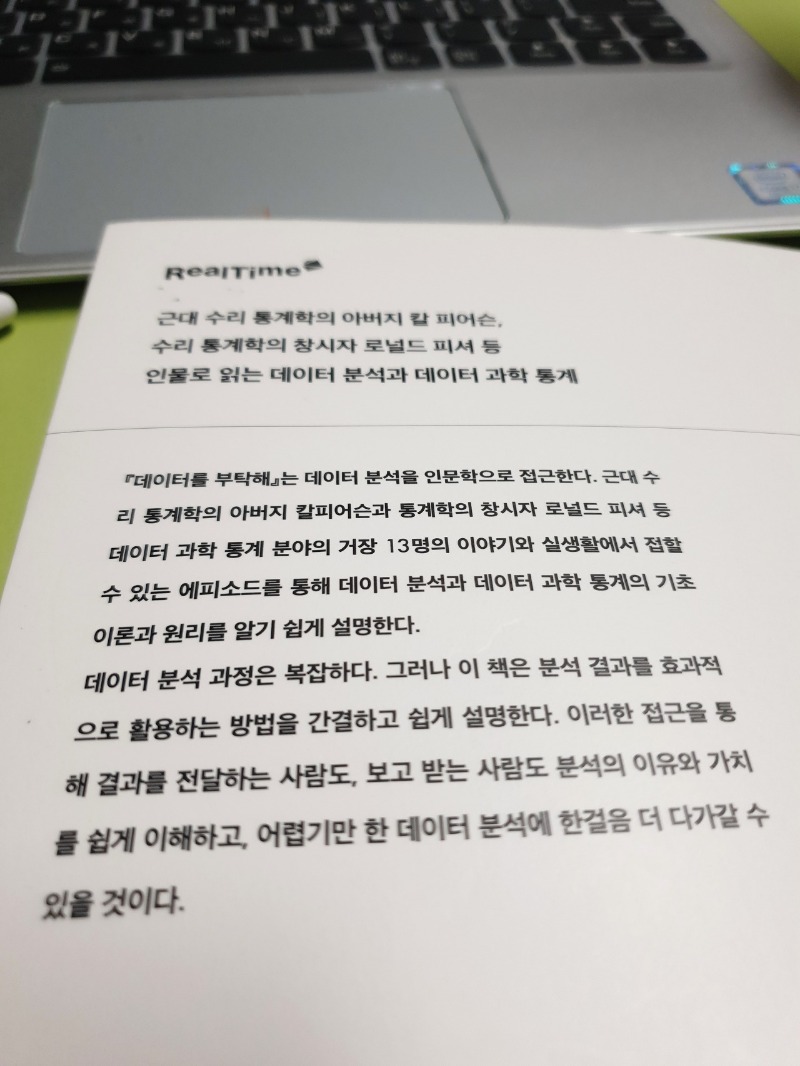 RealTime
근대 수리 통계학의 아버지 칼 피어슨,
수리 통계학의 창시자 로널드 피셔 등
인물로 읽는 데이터 분석과 데이터 과학 통계
『데이터를 부탁해』는 데이터 분석을 인문학으로 접근한다. 근대 수
리 통계학의 아버지 칼피어슨과 통계학의 창시자 로널드 피셔 등
데이터 과학 통계 분야의 거장 13명의 이야기와 실생활에서 접할
수 있는 에피소드를 통해 데이터 분석과 데이터 과학 통계의 기초
이론과 원리를 알기 쉽게 설명한다.
데이터 분석 과정은 복잡하다. 그러나 이 책은 분석 결과를 효과적
으로 활용하는 방법을 간결하고 쉽게 설명한다. 이러한 접근을 통
해 결과를 전달하는 사람도, 보고 받는 사람도 분석의 이유와 가치
를 쉽게 이해하고, 어렵기만 한 데이터 분석에 한걸음 더 다가갈 수
있을 것이다.